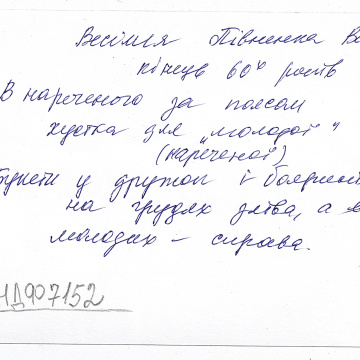 Весілля Півненка В
кінець 60х років
В нареченого за поясом
хустка для „молодої"
(нареченої)
Букети у дружок і бояринів
на грудях зліва, а в
молодих – справа.
НД907152